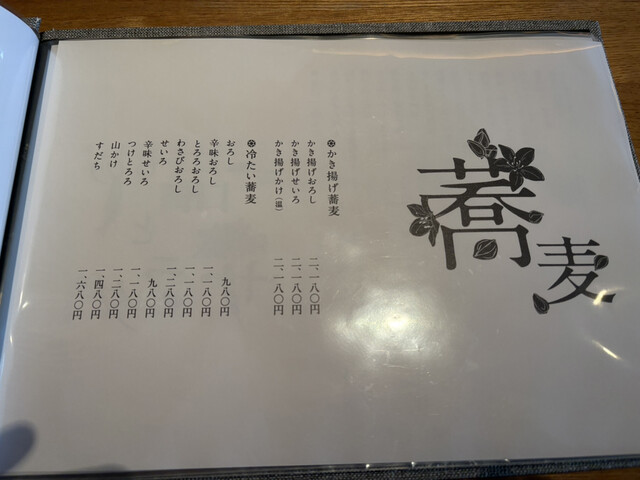 蕎麦
かき揚げ蕎麦
かき揚げおろし 二、一八〇円
かき揚げせいろ 二、一八〇円
かき揚げかけ(温) 二、一八〇円
冷たい蕎麦
おろし 九八〇円
辛味おろし 一、一八〇円
とろろおろし 一、一八〇円
わさびおろし 一、二八〇円
せいろ 九八〇円
辛味せいろ 一、一八〇円
つけとろろ 一、二八〇円
山かけ 一、四八〇円
すだち 一、六八〇円